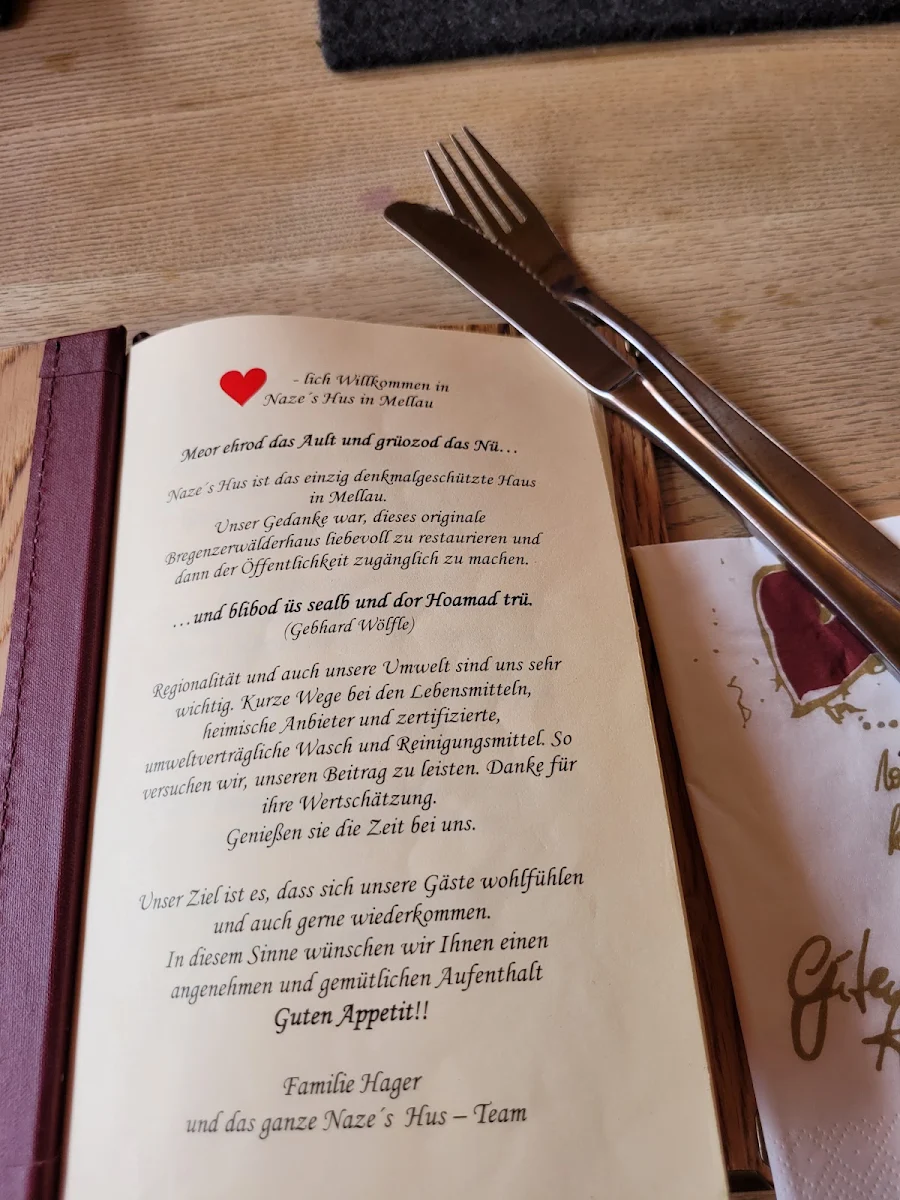 - lich Willkommen in
Naze´s Hus in Mellau
Meor ehrod das Ault und grüozod das Nü…
Naze´s Hus ist das einzig denkmalgeschützte Haus
in Mellau.
Unser Gedanke war, dieses originale
Bregenzerwälderhaus liebevoll zu restaurieren und
dann der Öffentlichkeit zugänglich zu machen.
…und blibod üs sealb und dor Hoamad trü.
(Gebhard Wölfle)
Regionalität und auch unsere Umwelt sind uns sehr
wichtig. Kurze Wege bei den Lebensmitteln,
heimische Anbieter und zertifizierte,
umweltverträgliche Wasch und Reinigungsmittel. So
versuchen wir, unseren Beitrag zu leisten. Danke für
ihre Wertschätzung.
Genießen sie die Zeit bei uns.
Unser Ziel ist es, dass sich unsere Gäste wohlfühlen
und auch gerne wiederkommen.
In diesem Sinne wünschen wir Ihnen einen
angenehmen und gemütlichen Aufenthalt
Guten Appetit!!
Familie Hager
und das ganze Naze´s Hus – Team
Guten